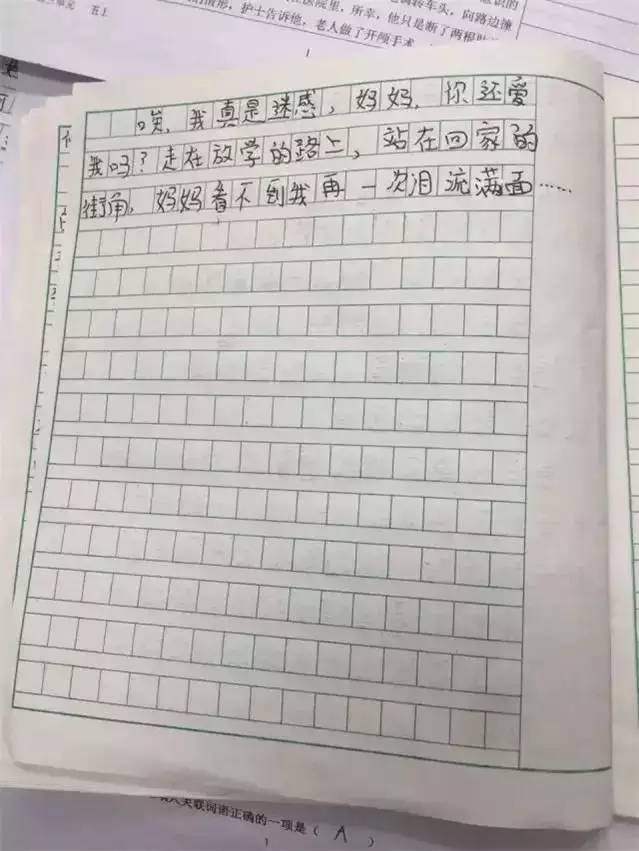 五上
的情形，护士告诉他，老人做了开颅手术
医院里，所幸，他只是断了两根肋
转车头，向路边缘
唉，我真是迷感，妈妈，你还爱
我吗？走在放学的路上，站在回家的
街角，妈妈看不到我再一次泪流满面……
关联词语正确的一项是（ A ）